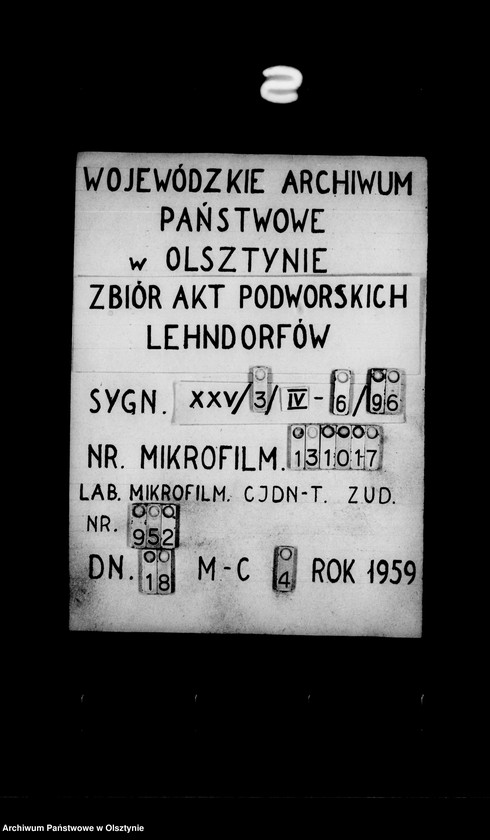 WOJEWÓDZKIE ARCHIWUM
PAŃSTWOWE
w OLSZTYNIE
ZBIÓR AKT PODWORSKICH
LEHNDORFÓW
SYGN. XXV/3/IV-6/96
NR. MIKROFILM. 131017
LAB. MIKROFILM. CJDN-T. ZUD.
NR. 952
DN. 18 M-C 4 ROK 1959
Archiwum Państwowe w Olsztynie